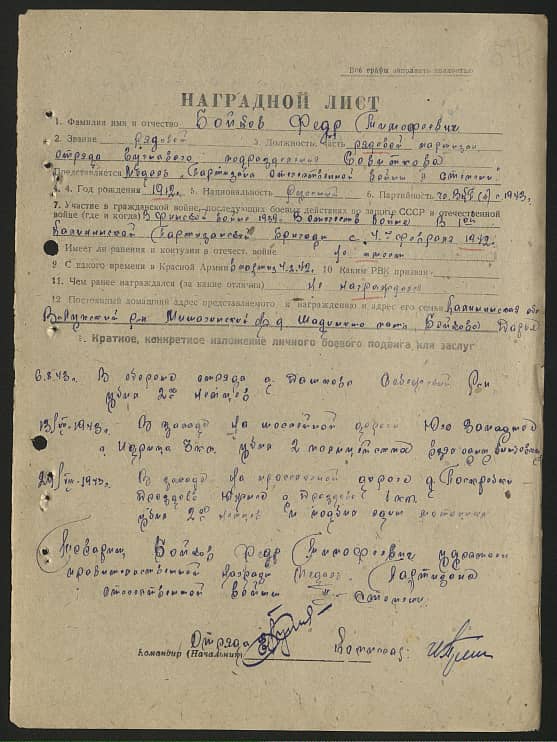 Все графы заполнять полностью
НАГРАДНОЙ ЛИСТ
1. Фамилия имя и отчество Бойков Федр Тимофеевич
2. Звание рядовой 3. Должность, часть рядовой партизан
отряда
Представляется Медаль "Партизана Отечественной войны II степени
4. Год рождения 1912г. 5. Национальность русский 6. Партийность с 1943г.
7. Участие в гражданской войне, последующих боевых действиях по защите СССР и отечественной
войне (где и когда) В финской войне 1939г. В Отечеств войне В 1 ей
Калининской Партизанской Бригаде с 4го февраля 1942г.
8. Имеет ли ранения и контузии в отечест. войне Не имеет
9 С какого времени в Красной Армии 4.2.42г. 10 Каким РВК призван -
11. Чем ранее награждался (за какие отличия) Не награждался
12 Постоянный домашний адрес представляемого к награждению и адрес его семьи Калининская обл
р-он д. мать Бойкова Дарья
I. Краткое, конкретное изложение личного боевого подвига или заслуг
6.8.43г. В обороне отряда д. Пашково р-н
убил 2х немцев
13/VIII-1943г. В засаде на шоссейной дороге Юго западной
г. Идрица 8 км. убил 2 полицейских
20/VIII-1943г. В засаде на проселочной дороге д.
1 км
убил 2х немцев и подбил один мотоцикл
Товарищ Бойков Федр Тимофеевич
правительственной награды Медаль "Партизана
отечественной войны" II степени.
Отряда
Командир (Начальник) Комиссар: